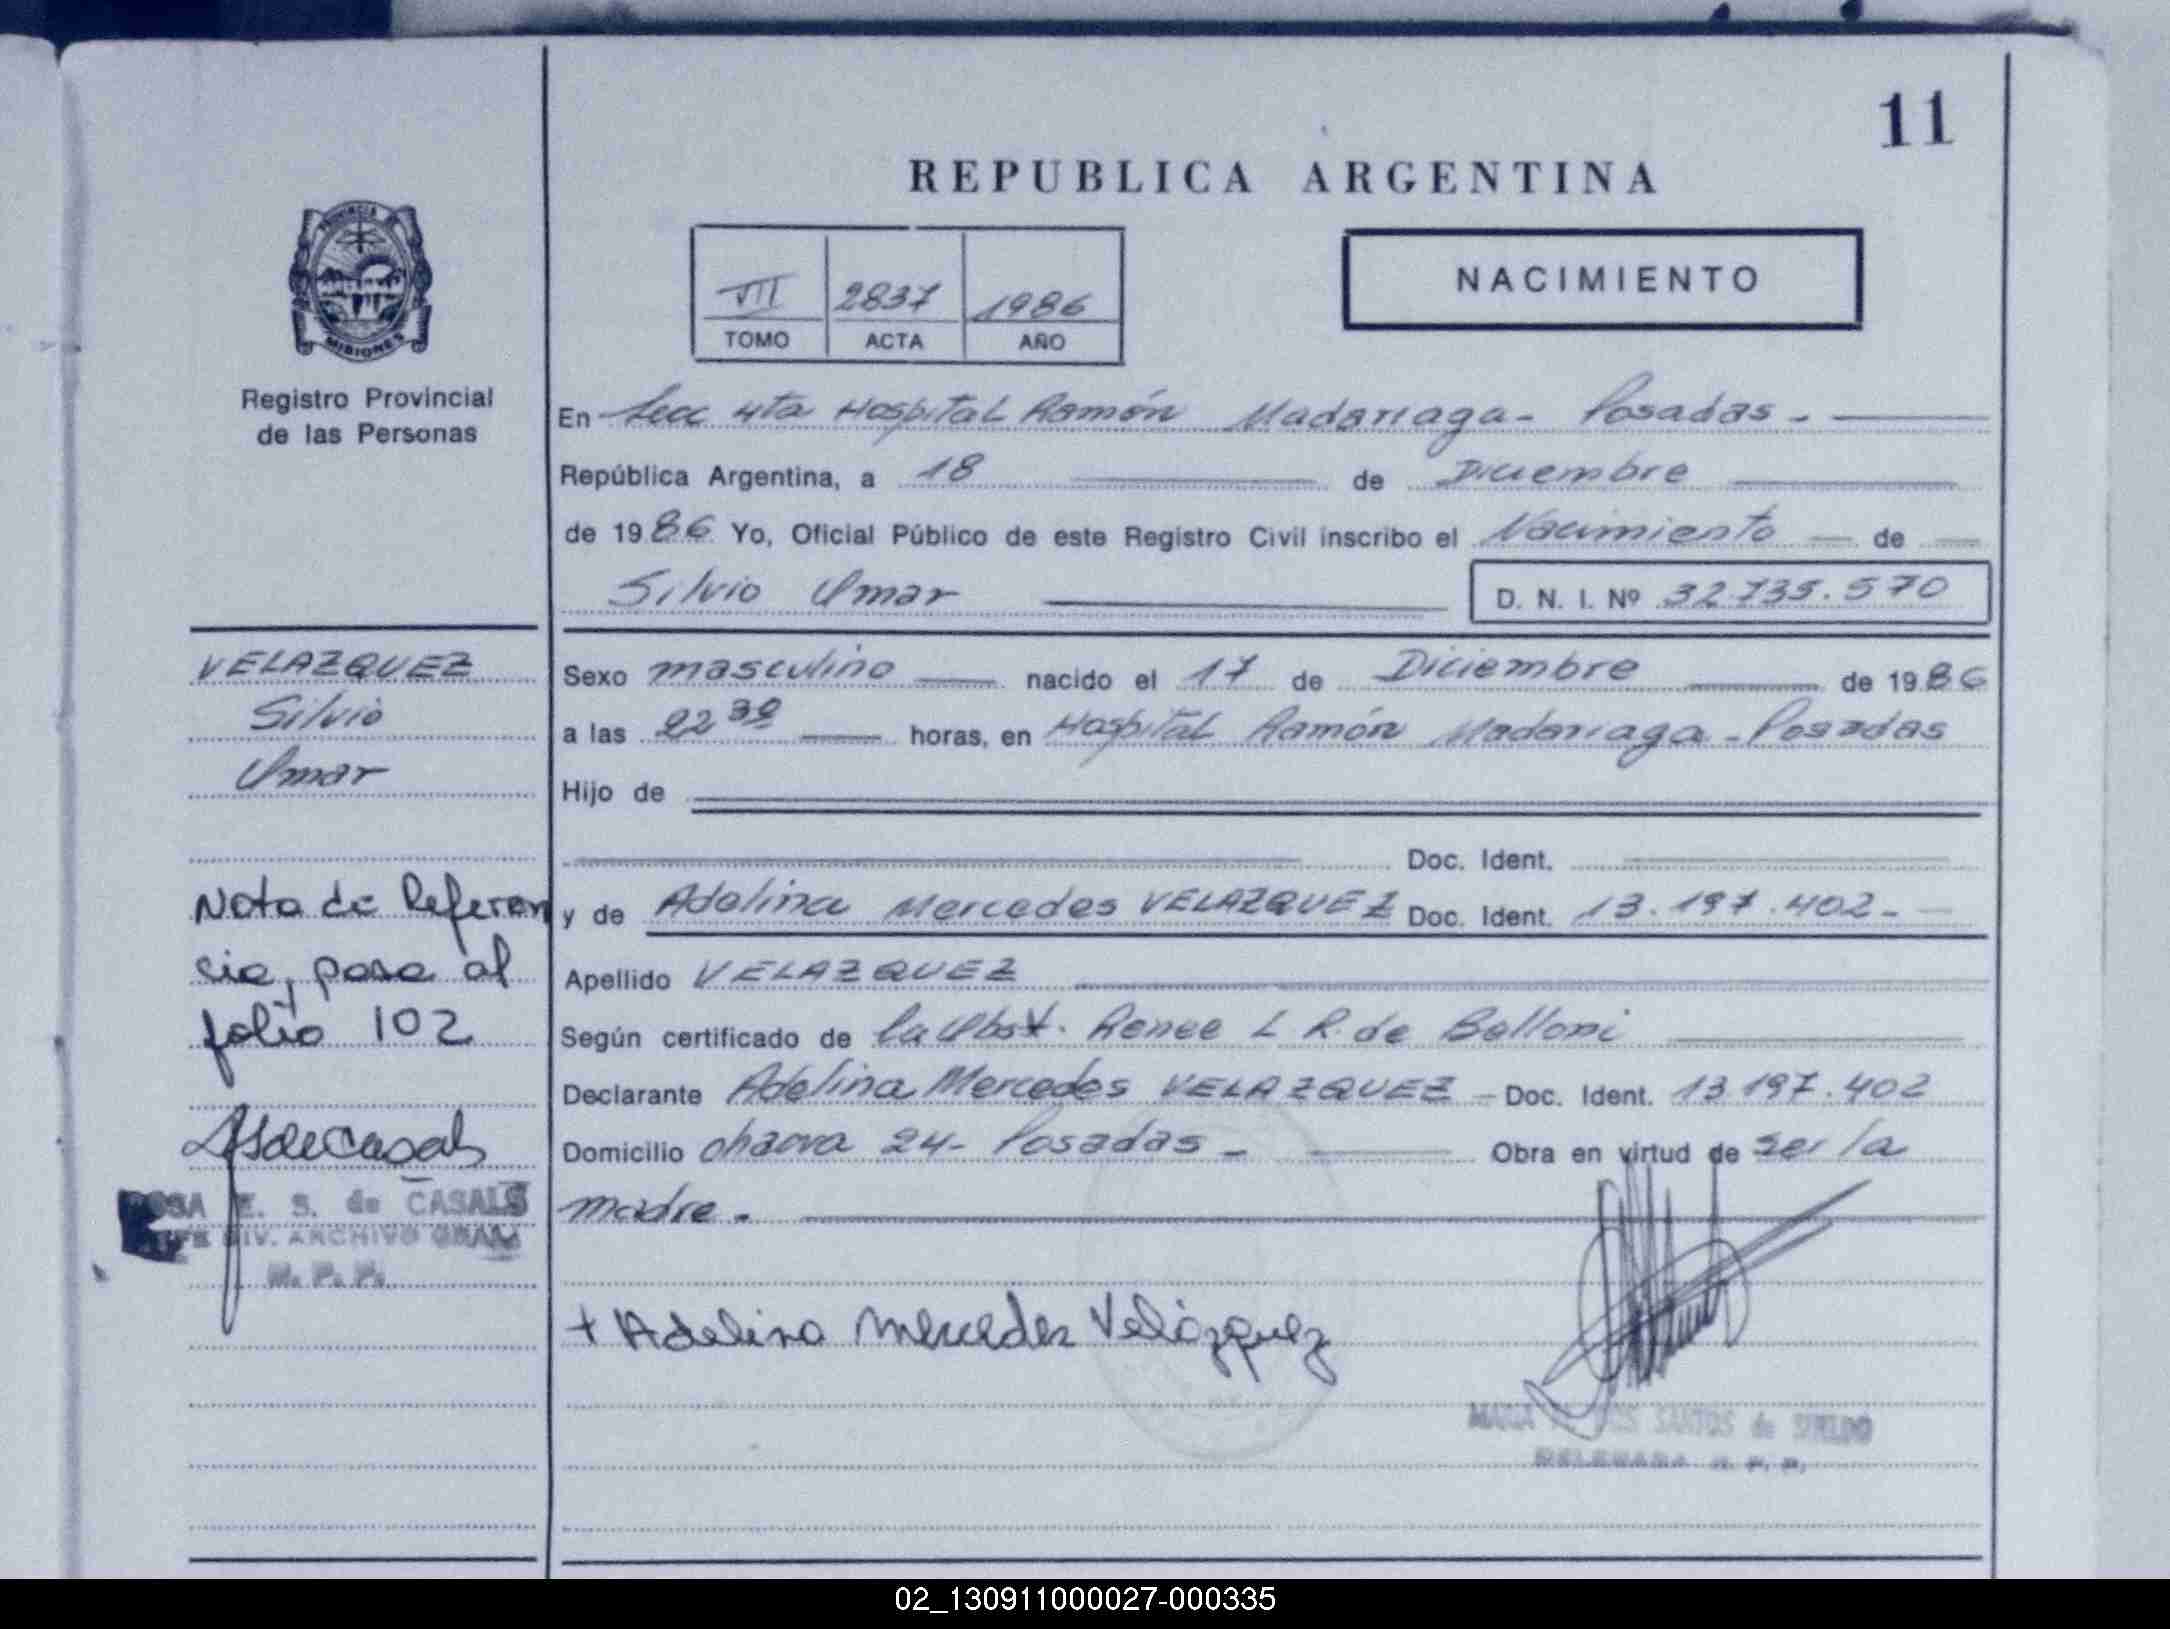 11
REPUBLICA ARGENTINA
PROVINCIA DE
MISIONES
Registro Provincial
de las Personas
VII 2837 1986
TOMO ACTA AÑO
NACIMIENTO
En Secc 4ta Hospital Ramón Madariaga - Posadas -
República Argentina, a 18 de Diciembre
de 1986 Yo, Oficial Público de este Registro Civil inscribo el Nacimiento de
Silvio Omar D. N. I. Nº 32.735.570
VELAZQUEZ
Silvio
Omar
Nota de Referen
cia, pasa al
folio 102
ROSA E. S. de CASALS
JEFE DIV. ARCHIVO GRAL
R. P. P.
Sexo masculino nacido el 17 de Diciembre de 1986
a las 22 30 horas, en Hospital Ramón Madariaga - Posadas
Hijo de
Doc. Ident.
y de Adelina Mercedes VELAZQUEZ Doc. Ident. 13.197.402 -
Apellido VELAZQUEZ
Según certificado de la Obst. Renee L R. de Belloni
Declarante Adelina Mercedes VELAZQUEZ - Doc. Ident. 13.197.402
Domicilio chacra 24 - Posadas - Obra en virtud de ser la
madre.
+ Adelina Mercedes Velázquez
MARIA DOS SANTOS de
DELEGADA R. P. P.
02_130911000027-000335